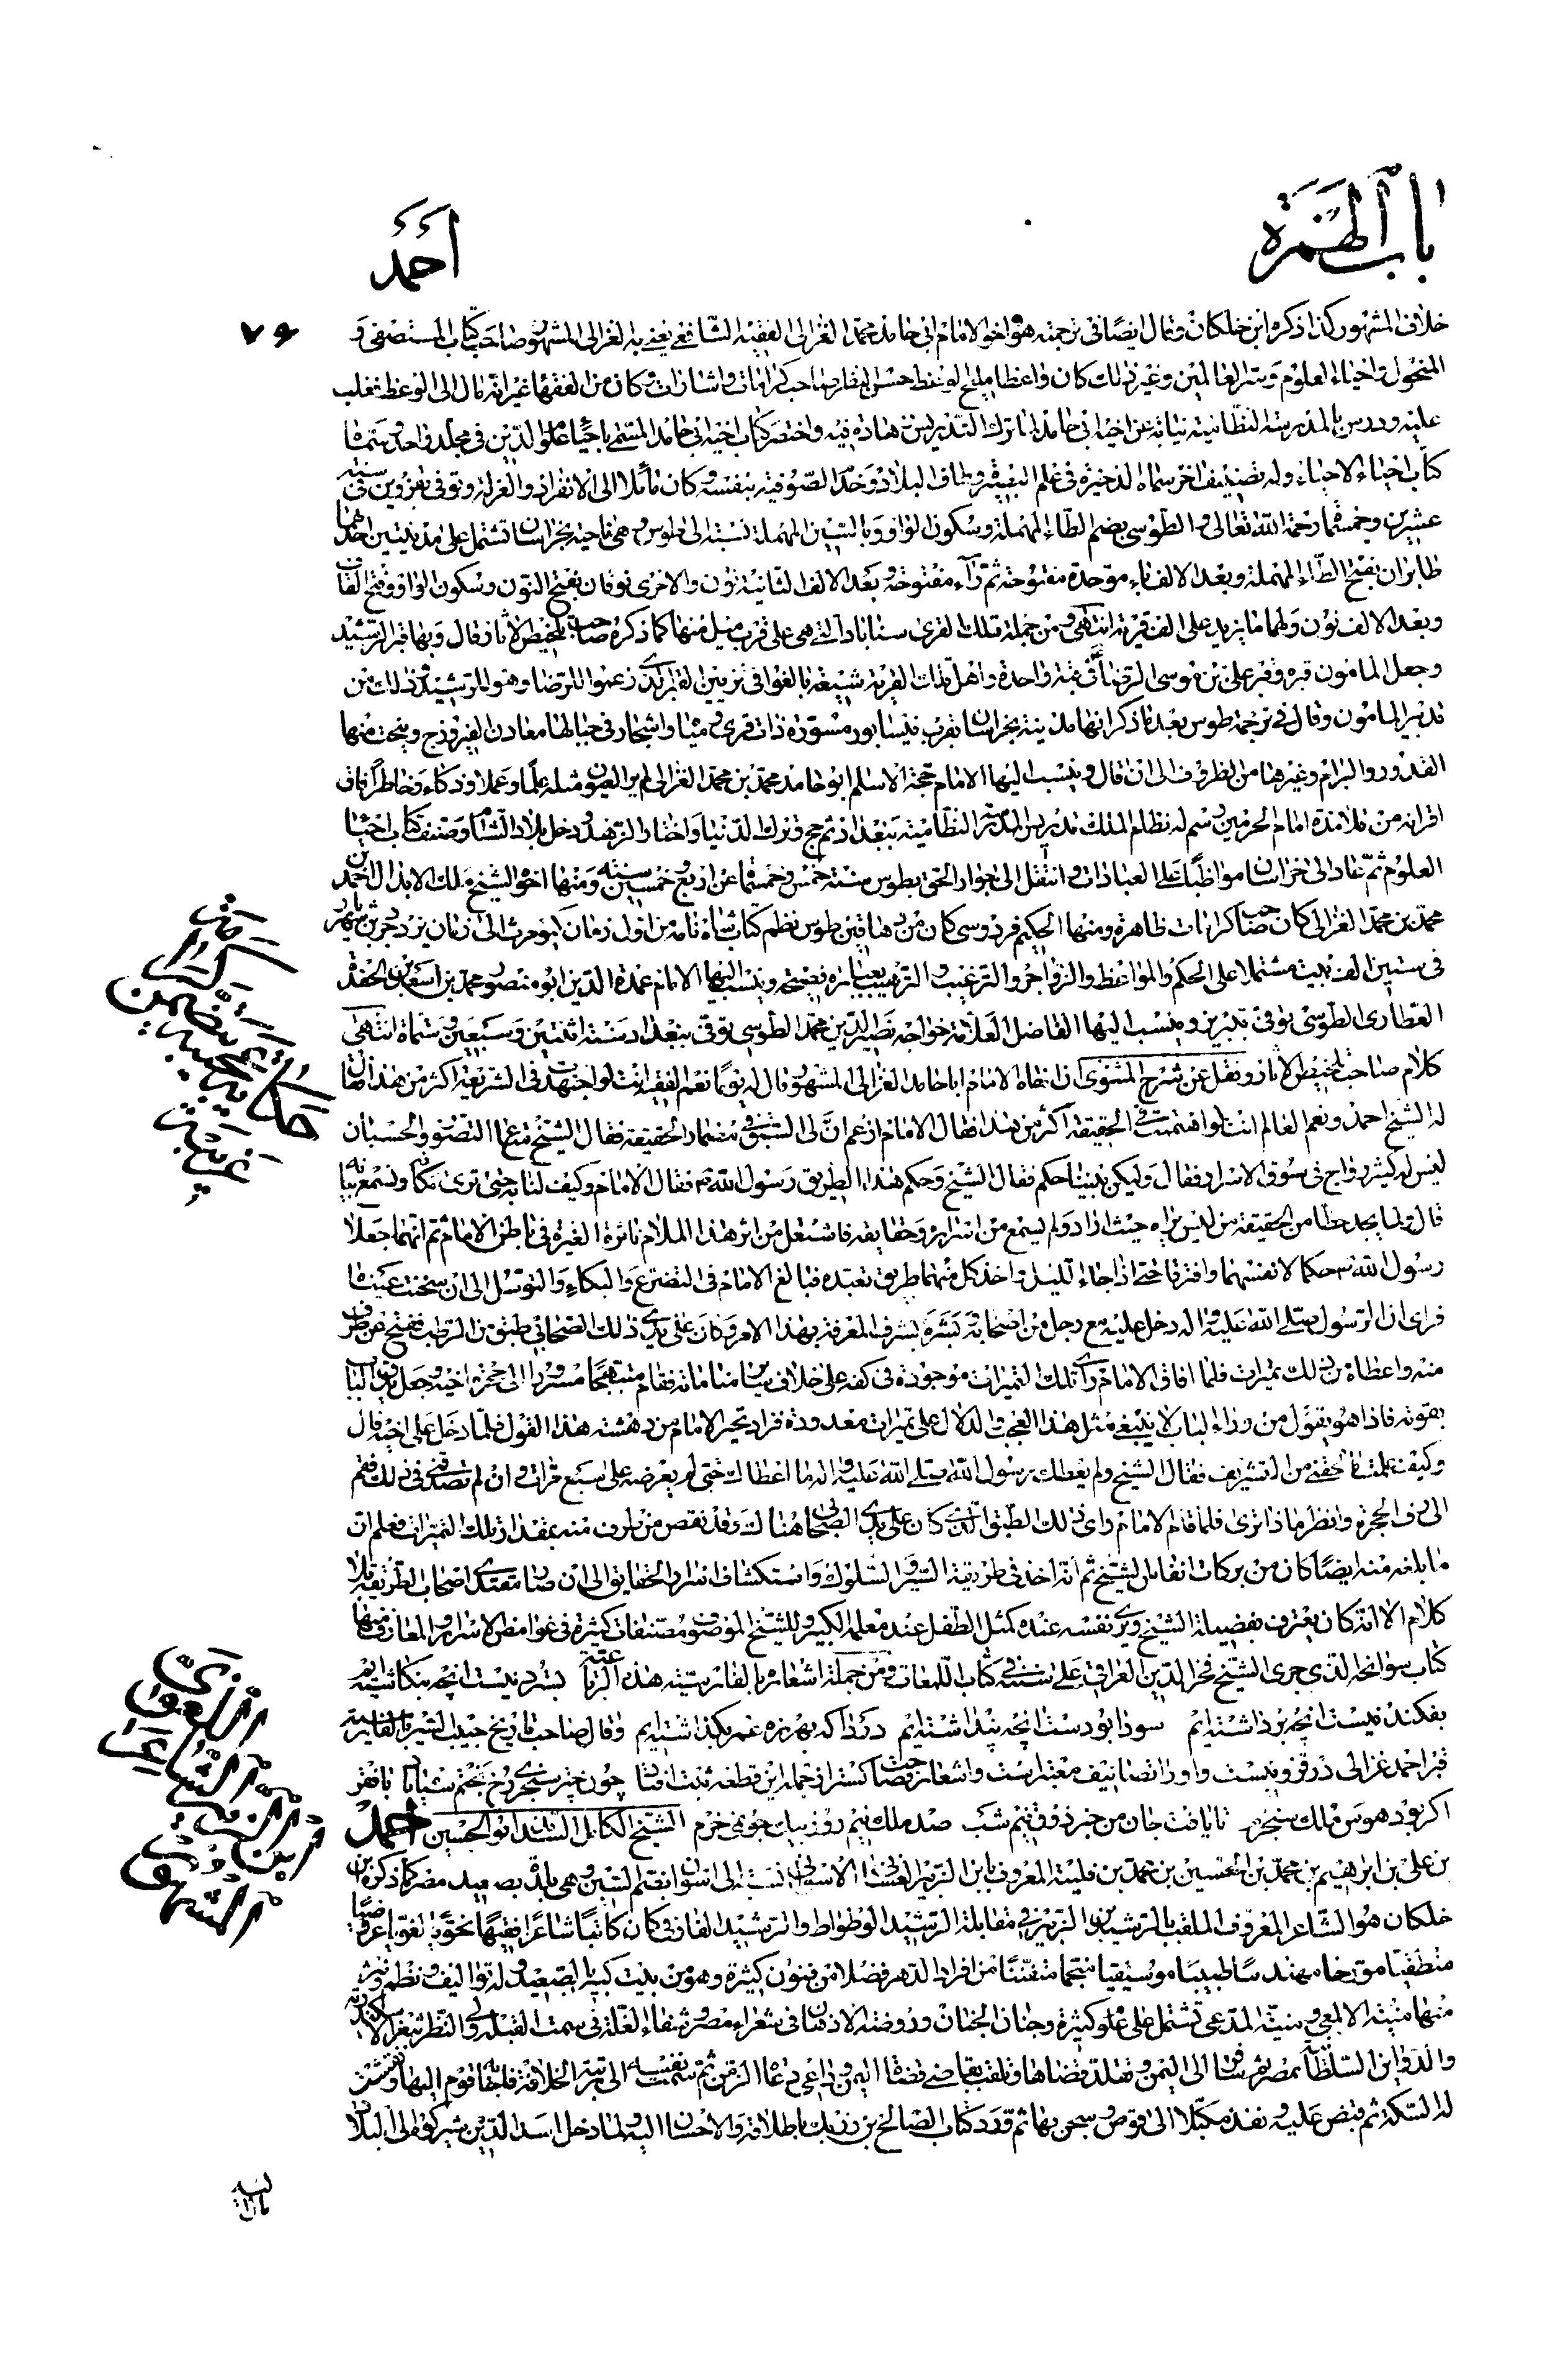 باب الهمزة
احمد
٧٦
خلاف المشهور كذا ذكره ابن خلكان وقال ايضا في ترجمته هو اخو الامام ابى حامد محمد الغزالى الفقيه الشافعى يعنى به الغزالى المشهور صاحب كتاب المستصفى و
المنخول واحياء العلوم وسر العالمين وغير ذلك كان واعظا مليح الوعظ حسن المنظر صاحب كرامات واشارات وكان من الفقهاء غير انه مال الى الوعظ فغلب
عليه ودرس بالمدرسة النظامية نيابة عن اخيه ابى حامد لما ترك التدريس زهادة فيه واختصر كتاب اخيه ابى حامد المسمى باحياء علوم الدين فى مجلد واحد وسماه
كتاب احياء الاحياء وله تصنيف اخر سماه الذخيرة فى علم البصيرة وطاف البلاد وخدم الصوفية بنفسه وكان مائلا الى الانفراد والعزلة وتوفى بقزوين فى سنة
عشرين وخمسمائة رحمة الله تعالى والطوسى بضم الطاء المهملة وسكون الواو وبالسين المهملة نسبة الى طوس وهى ناحية بخراسان تشتمل على مدينتين احدهما
طابران بفتح الطاء المهملة وبعد الالف باء موحدة مفتوحة ثم راء مفتوحة وبعد الالف الثانية نون والاخرى نوقان بفتح النون وسكون الواو وفتح القاف
وبعد الالف نون ولهما ما يزيد على الف قرية انتهى ومن جملة تلك القرى سناباد التى هى على قرب ميل منها كما ذكره صاحب تلخيص الاثار قال وبها قبر الرشيد
وجعل المامون قبره وقبر على بن موسى الرضا فى قبة واحدة واهل تلك القرية شيعة بالغوا فى تزيين القبر الذى زعموا للرضا وهو للرشيد وذلك من
تدبير المامون وقال فى ترجمة طوس بعد ما ذكر انها مدينة بخراسان بقرب نيسابور مشهورة ذات قرى ومياه واشجار فى جبالها معادن الفيروزج وينحت منها
القدور والبرام وغيرها من الظروف الى ان قال وينسب اليها الامام حجة الاسلام ابو حامد محمد بن محمد الغزالى لم ير العيون مثله علما وعملا وذكاء وخاطرا فاق
اقرانه من تلامذة امام الحرمين رسم له نظام الملك تدريس المدرسة النظامية ببغداد ثم حج وترك الدنيا واختار الزهد ودخل بلاد الشام وصنف كتاب احياء
العلوم ثم عاد الى خراسان مواظبا على العبادات وانتقل الى جوار الحق بطوس سنة خمس وخمسمائة عن اربع وخمسين سنة ومنها اخوه الشيخ ملك الابدال احمد بن
محمد بن محمد الغزالى كان صاحب كرامات ظاهرة ومنها الحكيم فردوسى كان من دهاقين طوس نظم كتاب شاه نامه من اول زمان كيومرث الى زمان يزدجرد بن شهريار
فى ستين الف بيت مشتملا على الحكم والمواعظ والزواجر والترغيب والترهيب بعبارة فصيحة وينسب اليها الامام عمدة الدين ابو منصور محمد بن اسعد بن الحفدة
العطارى الطوسى توفى بتبريز وينسب اليها الفاضل العلامة خواجه نصير الدين محمد الطوسى توفى ببغداد سنة اثنتين وسبعين وستمائة انتهى
كلام صاحب تلخيص الاثار ونقل عن شرح المثنوى ان اخاه الامام ابا حامد الغزالى المشهور قال له يوما نعم الفقيه انت لو اجتهدت فى الشريعة اكثر من هذا فقال
له الشيخ احمد ونعم العالم انت لو اهتممت فى الحقيقة اكثر من هذا فقال الامام ازعم ان لى السبق فى مضمار الحقيقة فقال الشيخ متاع التصور والحسبان
ليس له كثير رواج فى سوق الاسرار فقال وليكن بيننا حكم فقال الشيخ وحكم هذا الطريق رسول الله فقال الامام وكيف لنا به حتى نرى مكانه ونسمع بيانه
قال ولما يجد حظا من الحقيقة من ليس يراه حيث اراد ولم يسمع من اسراره وحقايقه فاشتعل من اثر هذا الكلام نائرة الغيرة فى باطن الامام ثم انهما جعلا
رسول الله حكما لانفسهما وافترقا حتى اذا جاء الليل واخذ كل منهما طريق تعبده فبالغ الامام فى التضرع والبكاء والتوسل الى ان سخنت عيناه
فراى ان الرسول صلى الله عليه واله دخل عليه مع رجل من اصحابه بشره بشرف المعرفة بهذا الامر وكان على يدى ذلك الصحابى طبق من الرطب ففتح عن طرف
منه واعطاه من ذلك تميرات فلما افاق الامام راى تلك التميرات موجودة فى كفه على خلاف سائر مناماته فقام مبتهجا مسرورا الى حجرة اخيه وجعل يدق الباب
بقوته فاذا هو يقول من وراء الباب لا ينبغى مثل هذا العجب والدلال على تميرات معدودة فزاد تحير الامام من دهشته هذا القول فلما دخل على اخيه قال
وكيف علمت ما لحقنى من التشريف فقال الشيخ ولم يعطك رسول الله صلى الله عليه واله ما اعطاك حتى لم يعرضه على سبع مرات وان لم تصدقنى فى ذلك فقم
الى رف الحجرة وانظر ماذا ترى فلما قام الامام راى ذلك الطبق الذى كان على يدى الصحابى هناك وقد نقص من طرف منه بمقدار تلك التميرات فعلم ان
ما بلغه منه ايضا كان من بركات انفاس الشيخ ثم انه اخذ فى طريقة السير والسلوك واستكشاف اسرار الحقايق الى ان صار مقتدى اصحاب الطريقة بلا
كلام الا انه كان يعترف بفضيلة الشيخ ويرى نفسه عنده كمثل الطفل عند معلمه الكبير وللشيخ الموصوف مصنفات كثيرة فى غوامض الاسرار والمعارف منها
كتاب سوانحه الذى جرى الشيخ فخر الدين العراقى على سننه فى كتاب اللمعات ومن جملة اشعاره بالفارسية هذه الرباعية بسترد نيست انچه بنگاشته ايم
بفكند نيست انچه برداشته ايم سودا بودست انچه پنداشته ايم دردا كه بهرزه عمر بگذاشته ايم وقال صاحب تاريخ حبيب السير بالفارسية
قبر احمد غزالى در قزوينست واورا تصانيف معتبر است واشعار فصاحت آثار از جمله اين قطعه ثبت افتاد چون چتر سنجرى رخ بختم سياه باد با فقر
اكر بود هوس ملك سنجرم تا يافت جان من خبر ذوق نيم شب صد ملك نيم روز بيك جو نمى خرم الشيخ الكامل السديد ابو الحسين احمد
بن على بن ابراهيم بن محمد بن الحسين بن محمد بن فليتة المعروف بابن الزبير الغسانى الاسوانى نسبة الى اسوان بضم السين وهى بلدة بصعيد مصر كما ذكره ابن
خلكان هو الشاعر المعروف الملقب بالرشيد بن الزبير فى مقابلة الرشيد الوطواط والرشيد الفارقى كان كاتبا شاعرا فقيها نحويا لغويا عروضيا
منطقيا مورخا مهندسا طبيبا موسيقيا منجما متفننا من افراد الدهر فضلا من فنون كثيرة وهو من بيت كبير بالصعيد وله تواليف ونظم ونثر
منها منية الالمعى وبنية المدعى تشتمل على علوم كثيرة وجنان الجنان وروضة الاذهان فى شعراء مصر وشفاء الغلة فى سمت القبلة ولى النظر بثغر الاسكندرية
والدواين السلطانية بمصر ثم سافر الى اليمن وتقلد قضاها وتلقب بقاضى قضاة اليمن وداعى دعاة الزمن ثم سمت نفسه الى رتبة الخلافة فاجابه قوم اليها وضربت
له السكة ثم قبض عليه ونفذ مكبلا الى قوص وسجن بها ثم ورد كتاب الصالح بن رزيك باطلاقه والاحسان اليه ولما دخل اسد الدين شيركوه الى البلاد
حكاية عجيبة تتضمن كرامات غريبة
ابن الزبير الشاعر اللغوى المشهور